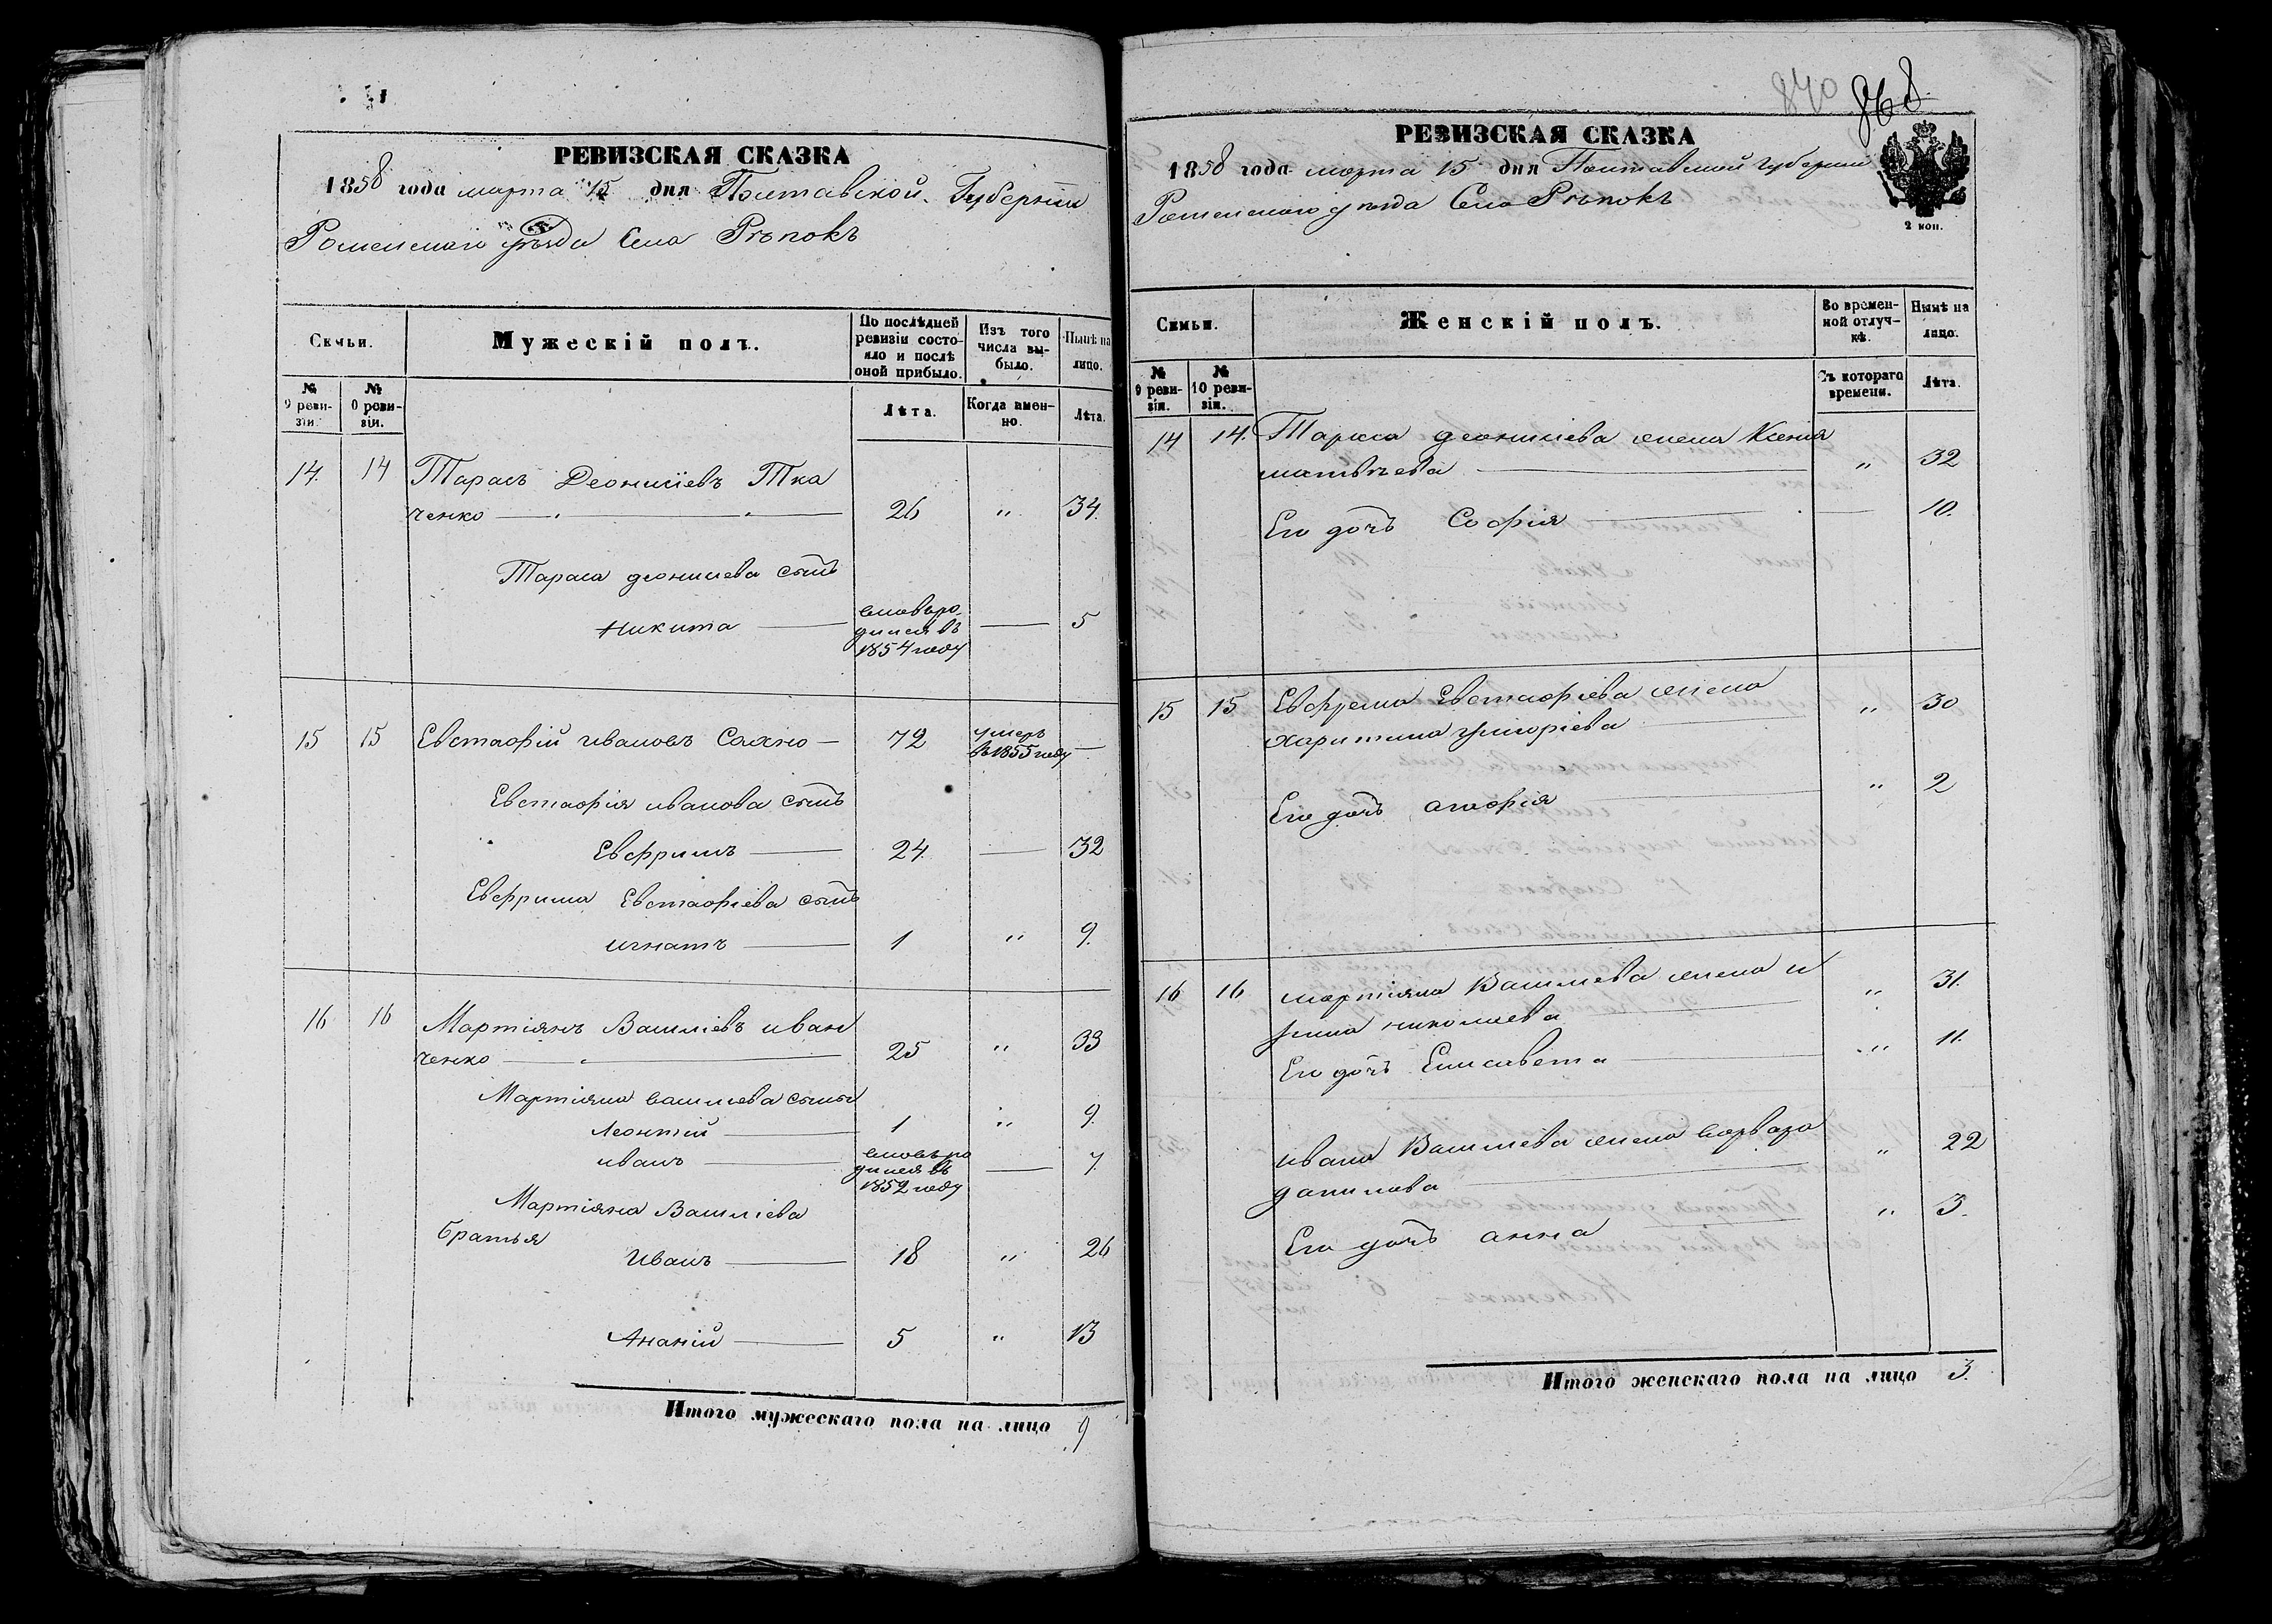 РЕВИЗСКАЯ СКАЗКА
1858 года марта 15 дня Полтавской Губернии
Роменскаго уѣзда Села Рѣпокъ
Семьи.
Мужескій полъ.
По послѣдней ревизіи состояло и послѣ оной прибыло.
Изъ того числа выбыло.
Нынѣ на лицо.
№ 9 ревизіи.
№ 10 ревизіи.
Лѣта.
Когда именно.
Лѣта.
14. 14 Тарасъ Деонисіевъ Тка
ченко 26 " 34.
Тараса деонисіева сынъ
Никита вновьро
дился въ
1854 году 5
15 15 Евстафій ивановъ Сахно 72 умеръ
въ 1855 году
Евстафія иванова сынъ
Евфримъ 24. 32
Евфрима Евстафіева сынъ
игнатъ 1 " 9.
16 16 Мартіянъ Василіевъ иван
ченко 25 " 33
Мартіяна василіева сыны
Леонтій 1 " 9.
иванъ вновьро
дился въ
1852 году 7.
Мартіяна Василіева
братья
Иванъ 18 " 26
Ананій 5 " 13
Итого мужескаго пола на лицо 9
840 868
РЕВИЗСКАЯ СКАЗКА
1858 года марта 15 дня Полтавской губерніи
Роменскаго уѣзда Села Рѣпокъ
2 коп.
Семьи.
Женскій полъ.
Во временной отлучкѣ.
Нынѣ на лицо.
№ 9 ревизіи.
№ 10 ревизіи.
Съ котораго времени.
Лѣта.
14 14. Тараса деонисіева жена Ксенія
матвѣева " 32
Его дочь Софія 10.
15 15 Евфрема Евстафіева жена
харитина григоріева " 30
Его дочь агафія " 2
16 16 мартіяна Василіева жена и
рина николаева " 31.
Его дочь Елисавета " 11.
ивана Василіева жена варвара
данилова " 22
Его дочь анна " 3.
Итого женскаго пола на лицо 3.